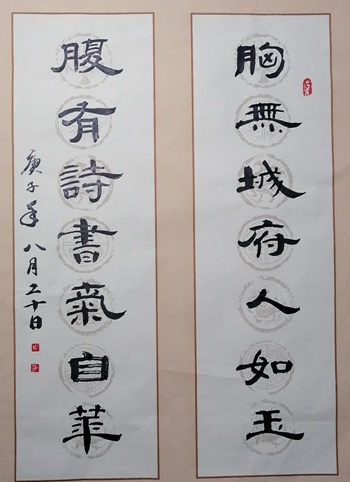 胸無城府人如玉
腹有詩書氣自華
庚子年八月二十日